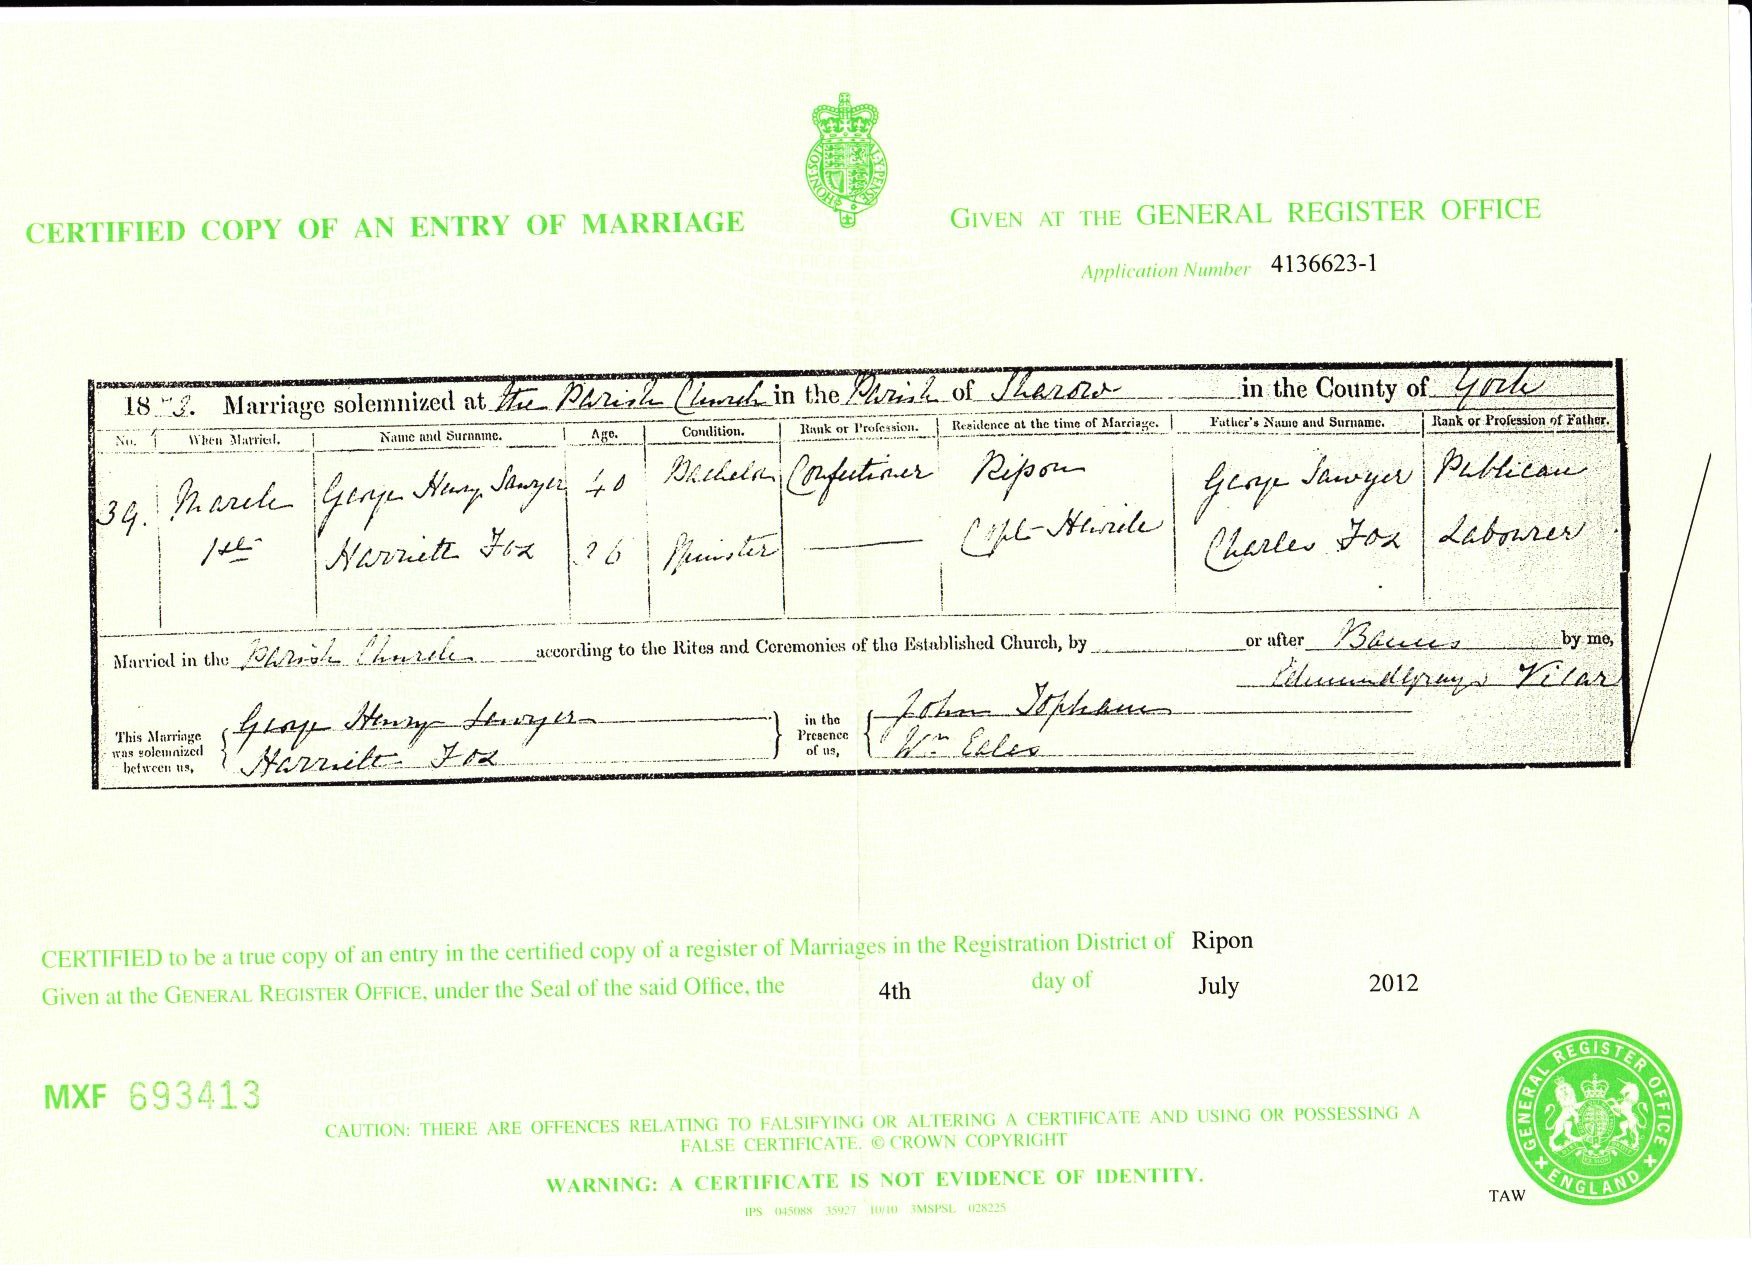 CERTIFIED COPY OF AN ENTRY OF MARRIAGE
HONI SOIT QUI MAL Y PENSE
GIVEN AT THE GENERAL REGISTER OFFICE
Application Number 4136623-1
1873. Marriage solemnized at the Parish Church in the Parish of Sharow in the County of York
No. When Married. Name and Surname. Age. Condition. Rank or Profession. Residence at the time of Marriage. Father's Name and Surname. Rank or Profession of Father.
39. March George Henry Sawyer 40 Bachelor Confectioner Ripon George Sawyer Publican
1st Harriett Fox 26 Spinster Copt Hewick Charles Fox Labourer
Married in the Parish Church according to the Rites and Ceremonies of the Established Church, by or after Banns by me,
Edmund Gray Vicar
This Marriage was solemnized between us, George Henry Sawyer in the Presence of us, John Topham
Harriett Fox Wm Eales
CERTIFIED to be a true copy of an entry in the certified copy of a register of Marriages in the Registration District of Ripon
Given at the GENERAL REGISTER OFFICE, under the Seal of the said Office, the 4th day of July 2012
MXF 693413
CAUTION: THERE ARE OFFENCES RELATING TO FALSIFYING OR ALTERING A CERTIFICATE AND USING OR POSSESSING A
FALSE CERTIFICATE. © CROWN COPYRIGHT
WARNING: A CERTIFICATE IS NOT EVIDENCE OF IDENTITY.
IPS 045088 35927 10/10 3MSPSL 028225
TAW
GENERAL REGISTER OFFICE ENGLAND